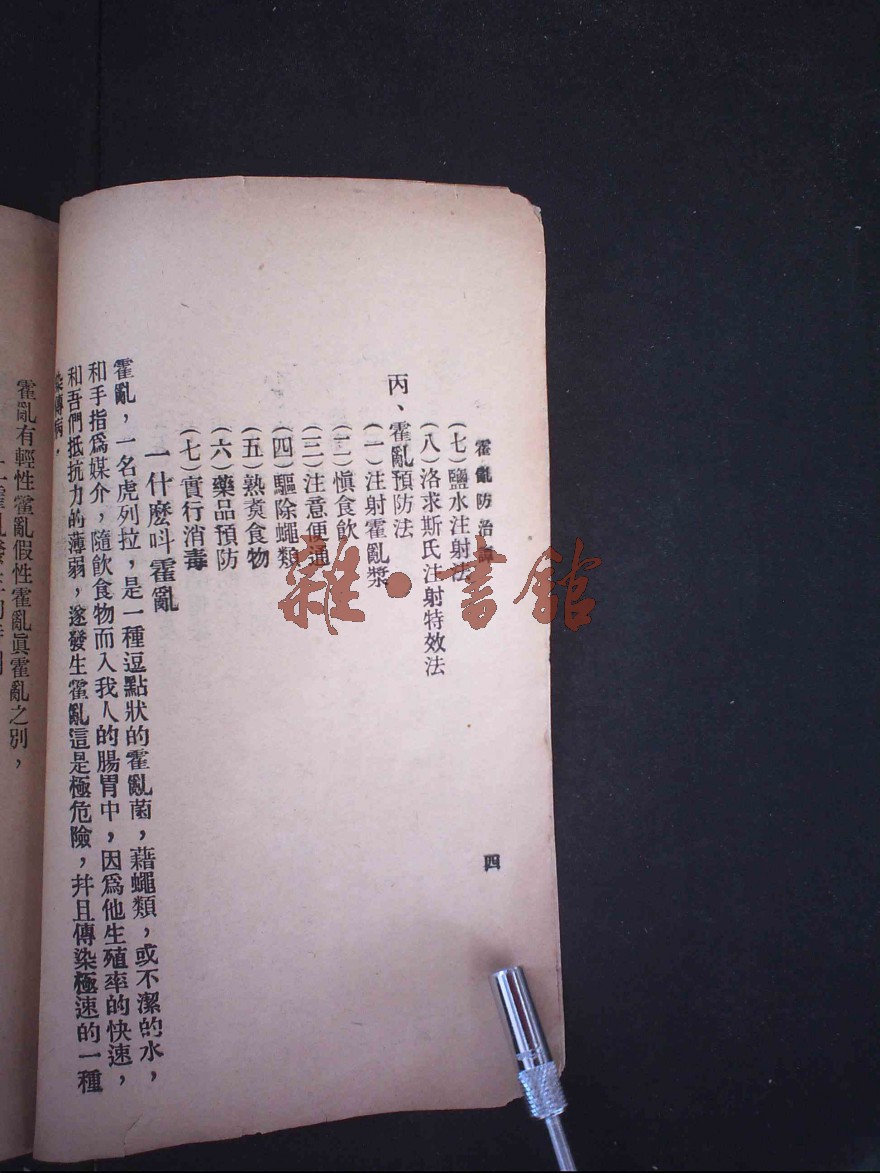 霍亂防治
四
(七)鹽水注射法
(八)洛求斯氏注射特效法
丙、霍亂預防法
(一)注射霍亂漿
(二)慎食飲
(三)注意便通
(四)驅除蠅類
(五)熟煑食物
(六)藥品預防
(七)實行消毒
一什麽呌霍亂
霍亂，一名虎列拉，是一種逗點狀的霍亂菌，藉蠅類，或不潔的水，
和手指爲媒介，隨飲食物而入我人的腸胃中，因爲他生殖率的快速，
和吾們抵抗力的薄弱，遂發生霍亂這是極危險，幷且傳染極速的一種
染傳病，
霍亂有輕性霍亂假性霍亂眞霍亂之別，
雜·書館